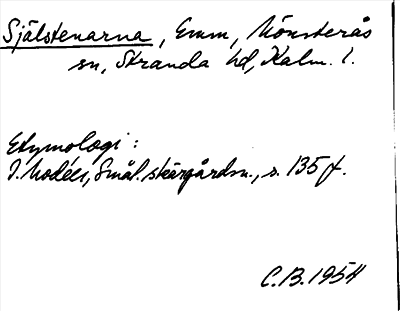 Själstenarna, Emm, Mönsterås
sn, Stranda hd, Kalm. l.
Etymologi:
I. Modéer, Smål. skärgårdsn., s. 135 f.
C.B. 1954